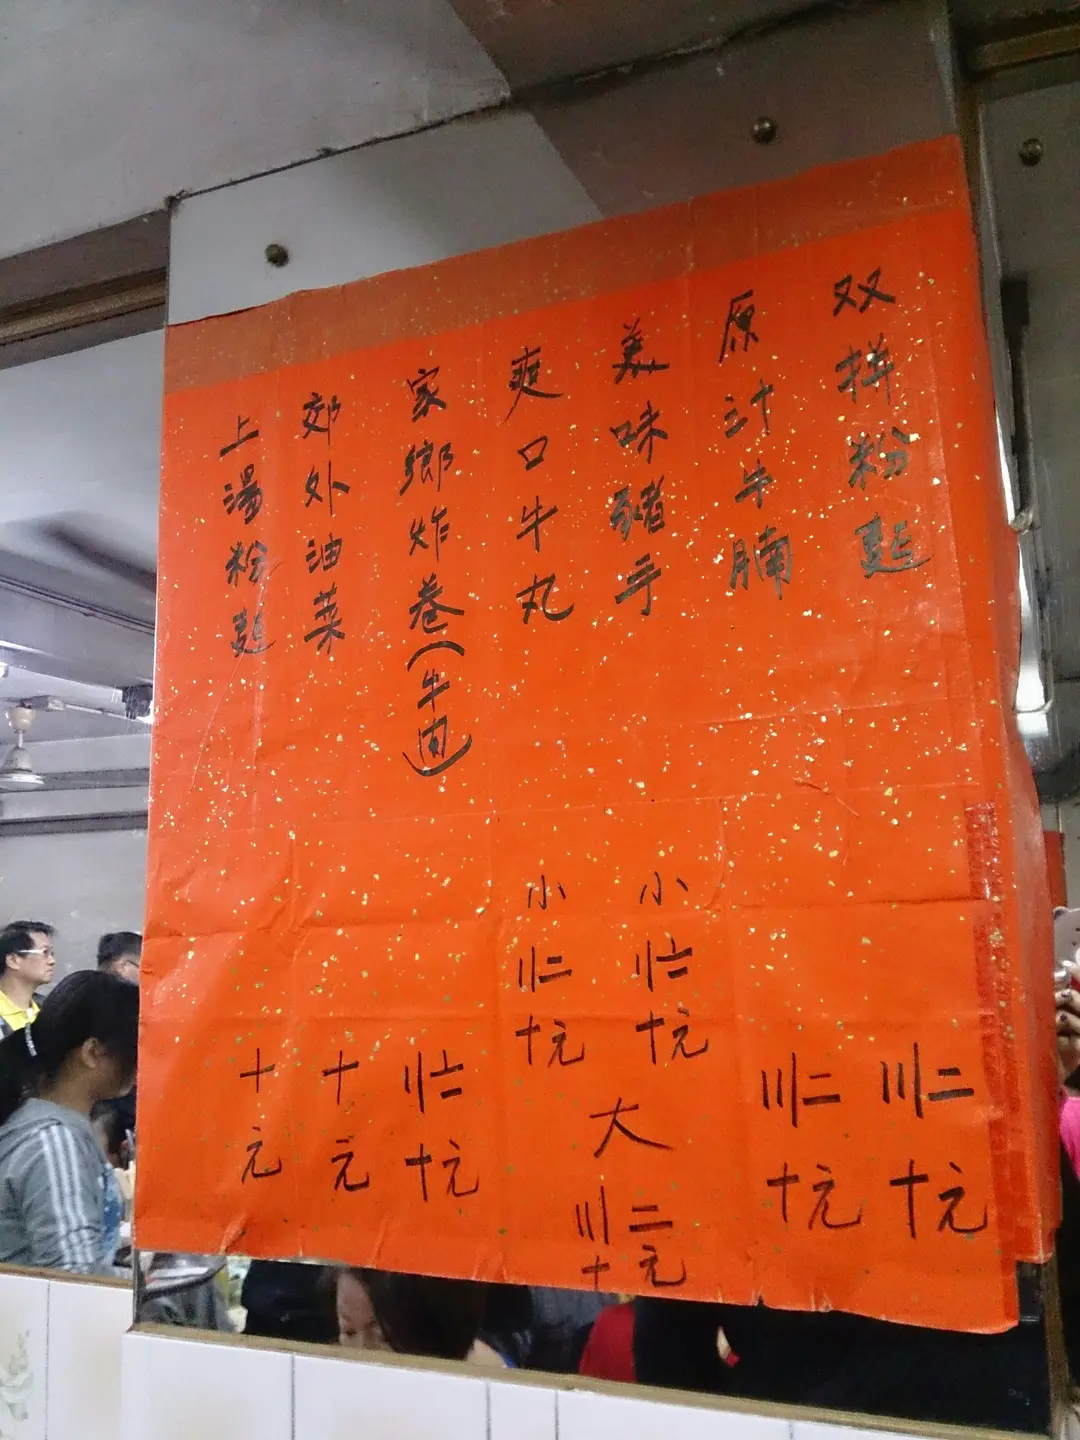 双拼粉麵
〣二
十元
原汁牛腩
〣二
十元
美味豬手
小
〢〦
十元
爽口牛丸
小
〢二
十元
大
〣二
十元
家鄉炸卷(牛肉)
〢〦
十元
郊外油菜
十元
上湯粉麵
十元